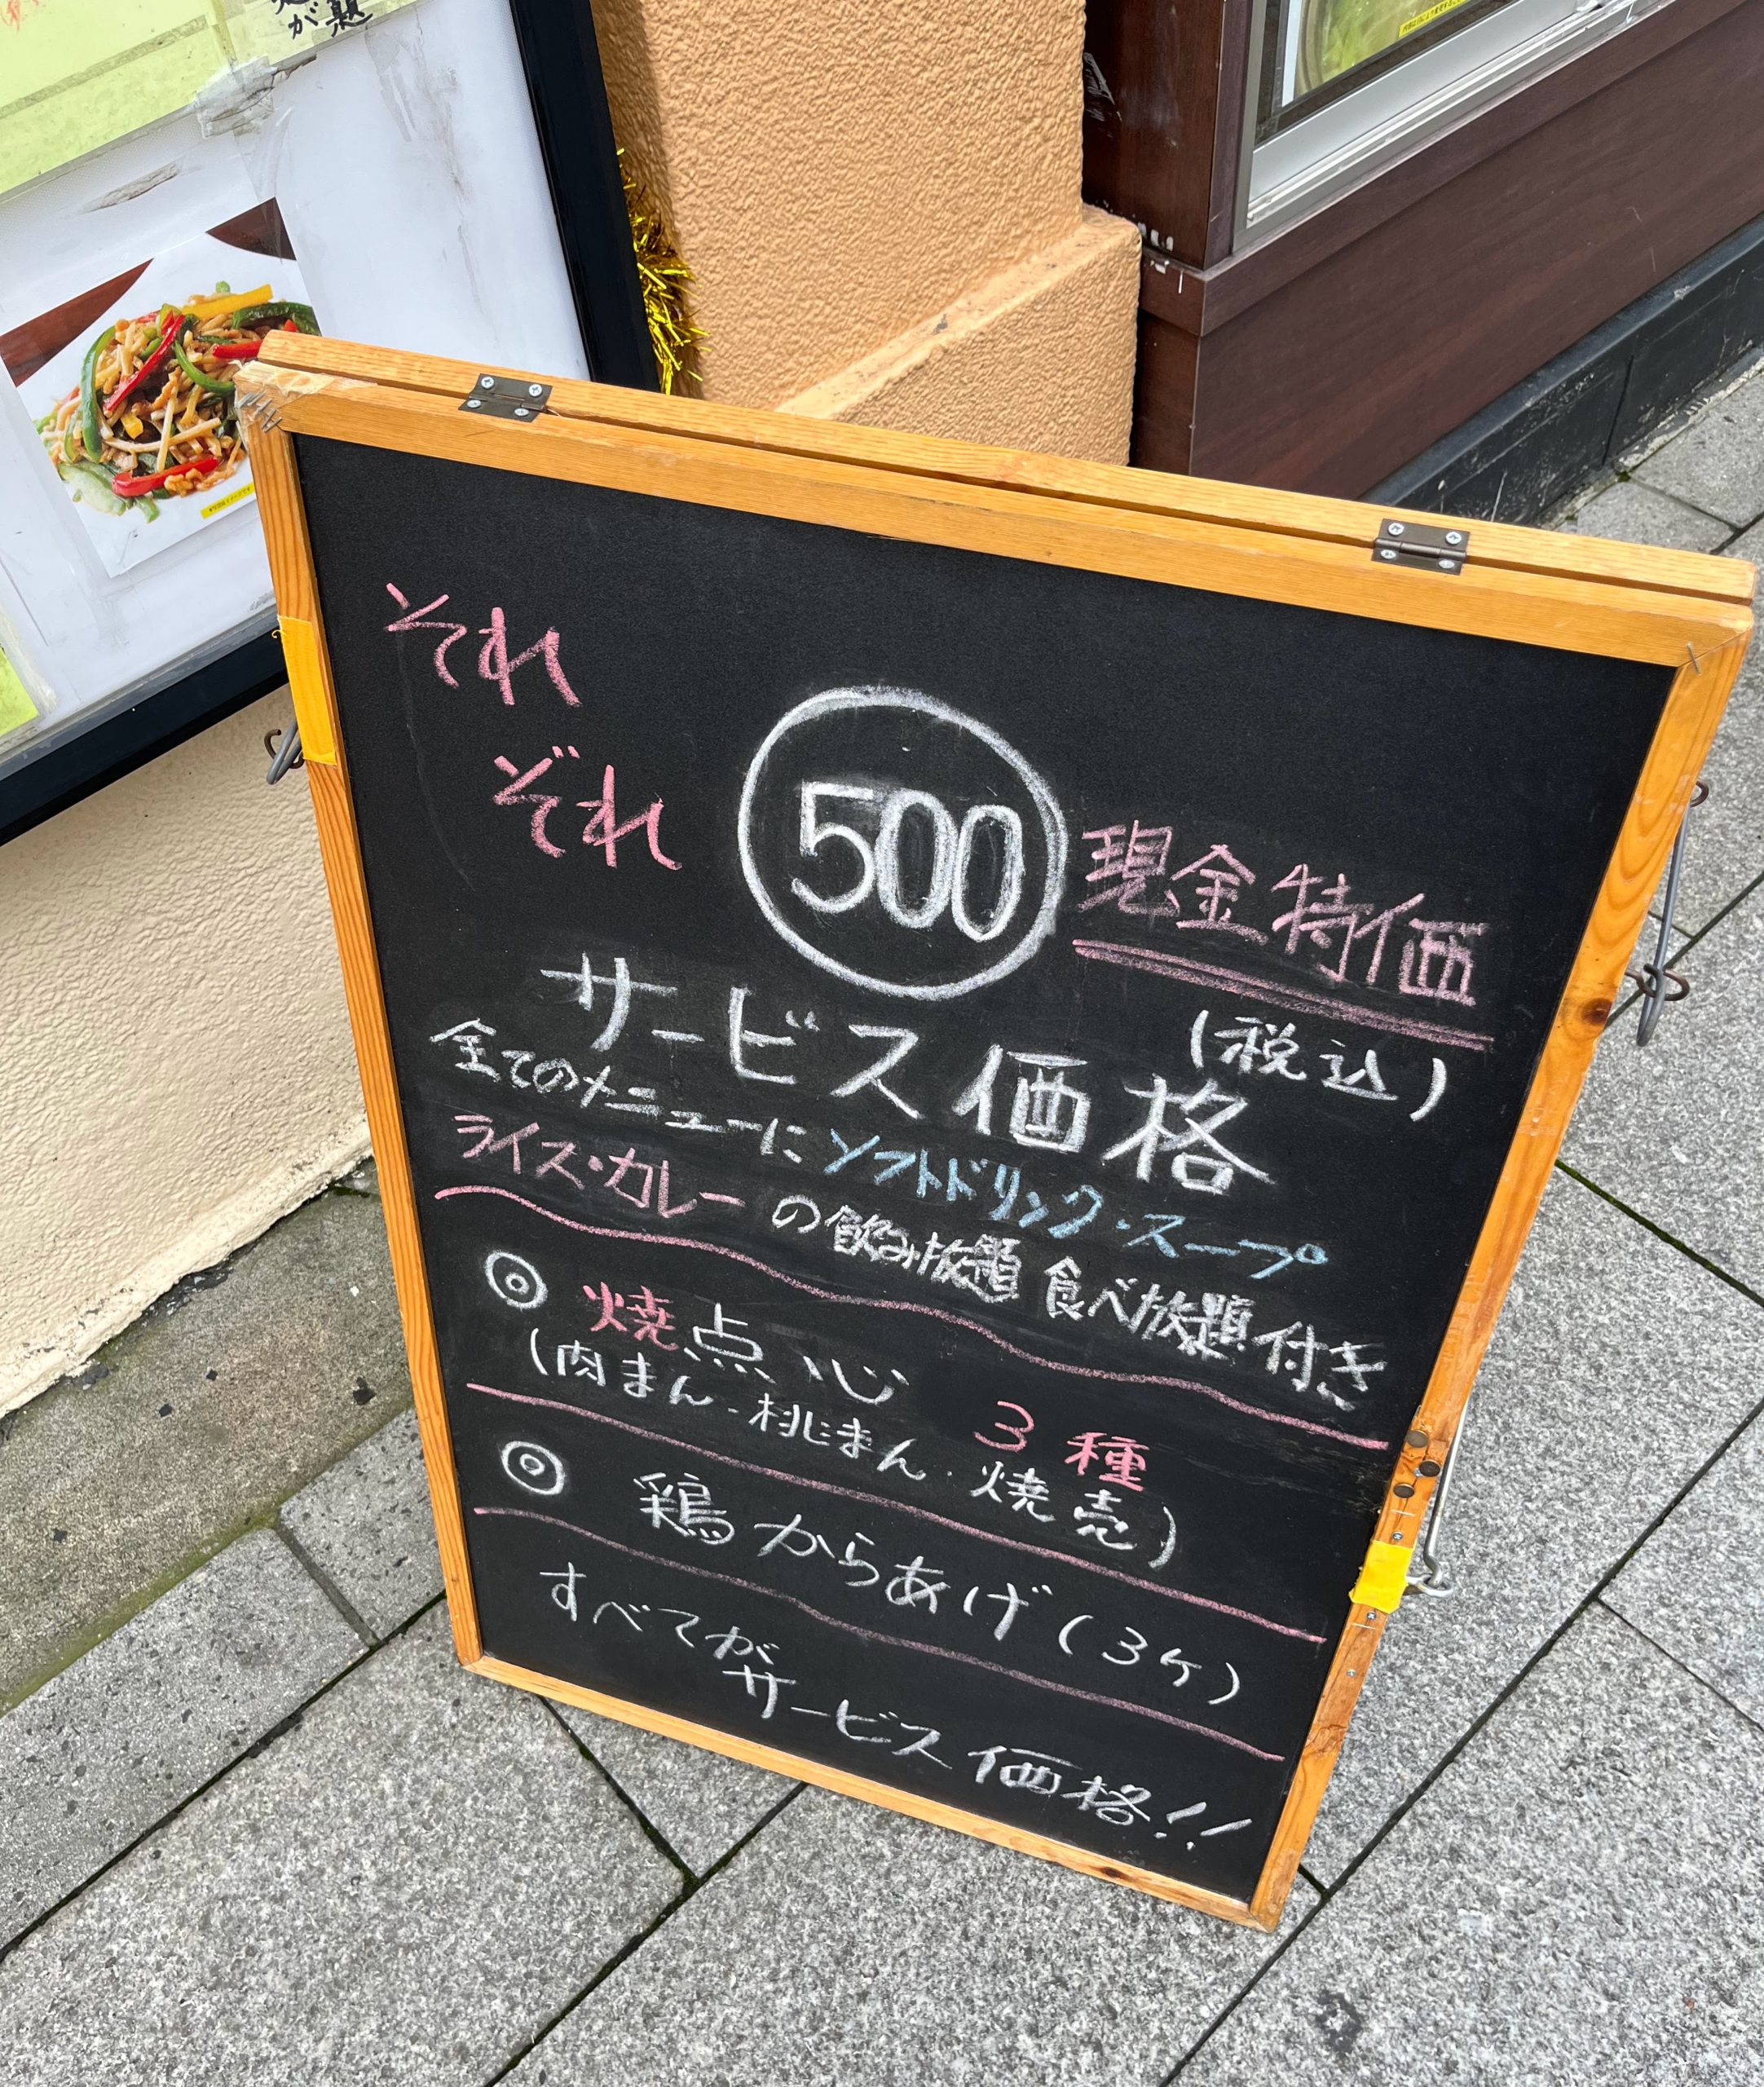 が 題
それ
ぞれ
500 現金特価
(税込)
サービス価格
全てのメニューにソフトドリンク・スープ
ライス・カレーの飲み放題 食べ放題付き
◎ 焼点心 3種
(肉まん・桃まん・焼売)
◎ 鶏からあげ(3ヶ)
すべてが
サービス価格!!